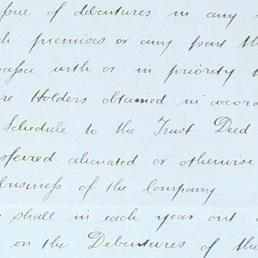 issue of debentures in any
premises or any part th
with or in priority t
re Holders obtained in accor
Schedule to the Trust Deed
sferred alienated or otherwise
business of the Company
shall in each year out
on the Debentures of the